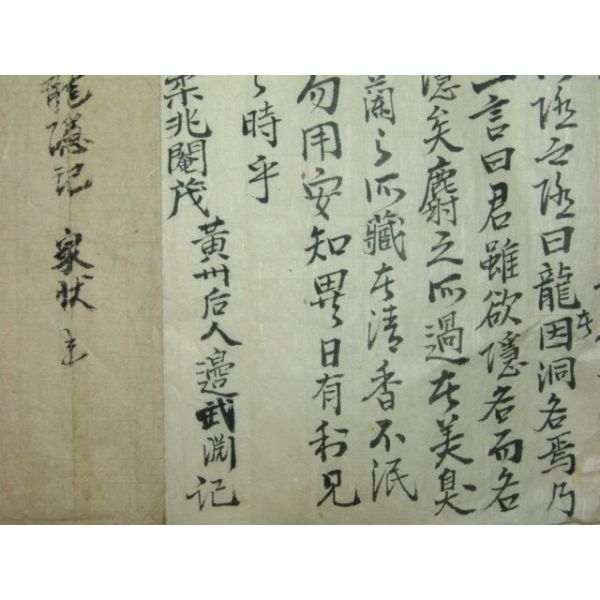 隱之隱曰龍因洞名焉乃
言曰君雖欲隱名而名
隱矣麝之所過在美臭
蘭之所藏在清香不泯
勿用安知異日有利見
之時乎
柔兆閹茂 黃州后人邊武淵記
龍隱記 家狀